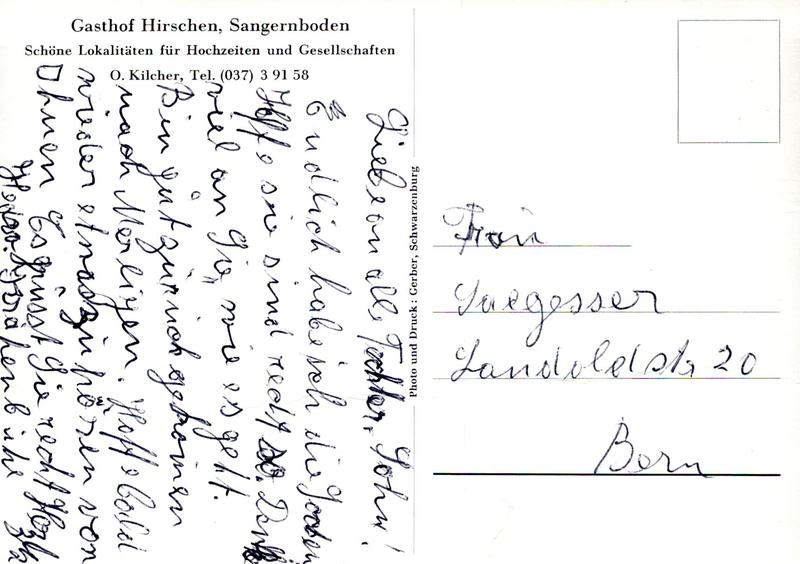 Gasthof Hirschen, Sangernboden
Schöne Lokalitäten für Hochzeiten und Gesellschaften
O. Kilcher, Tel. (037) 3 91 58
Liebe an alle Tochter, Sohn!
Endlich habe ich die
Hoffe sie sind recht so. Denke
viel an Sie, wie es geht.
Bin gut zurück gekomen
nach Merligen. Hoffe bald
wieder etwas zu hören von
Ihnen Es grüsst Sie recht Herzl
Photo und Druck: Gerber, Schwarzenburg
Frau
Saegesser
Landoldstr 20
Bern